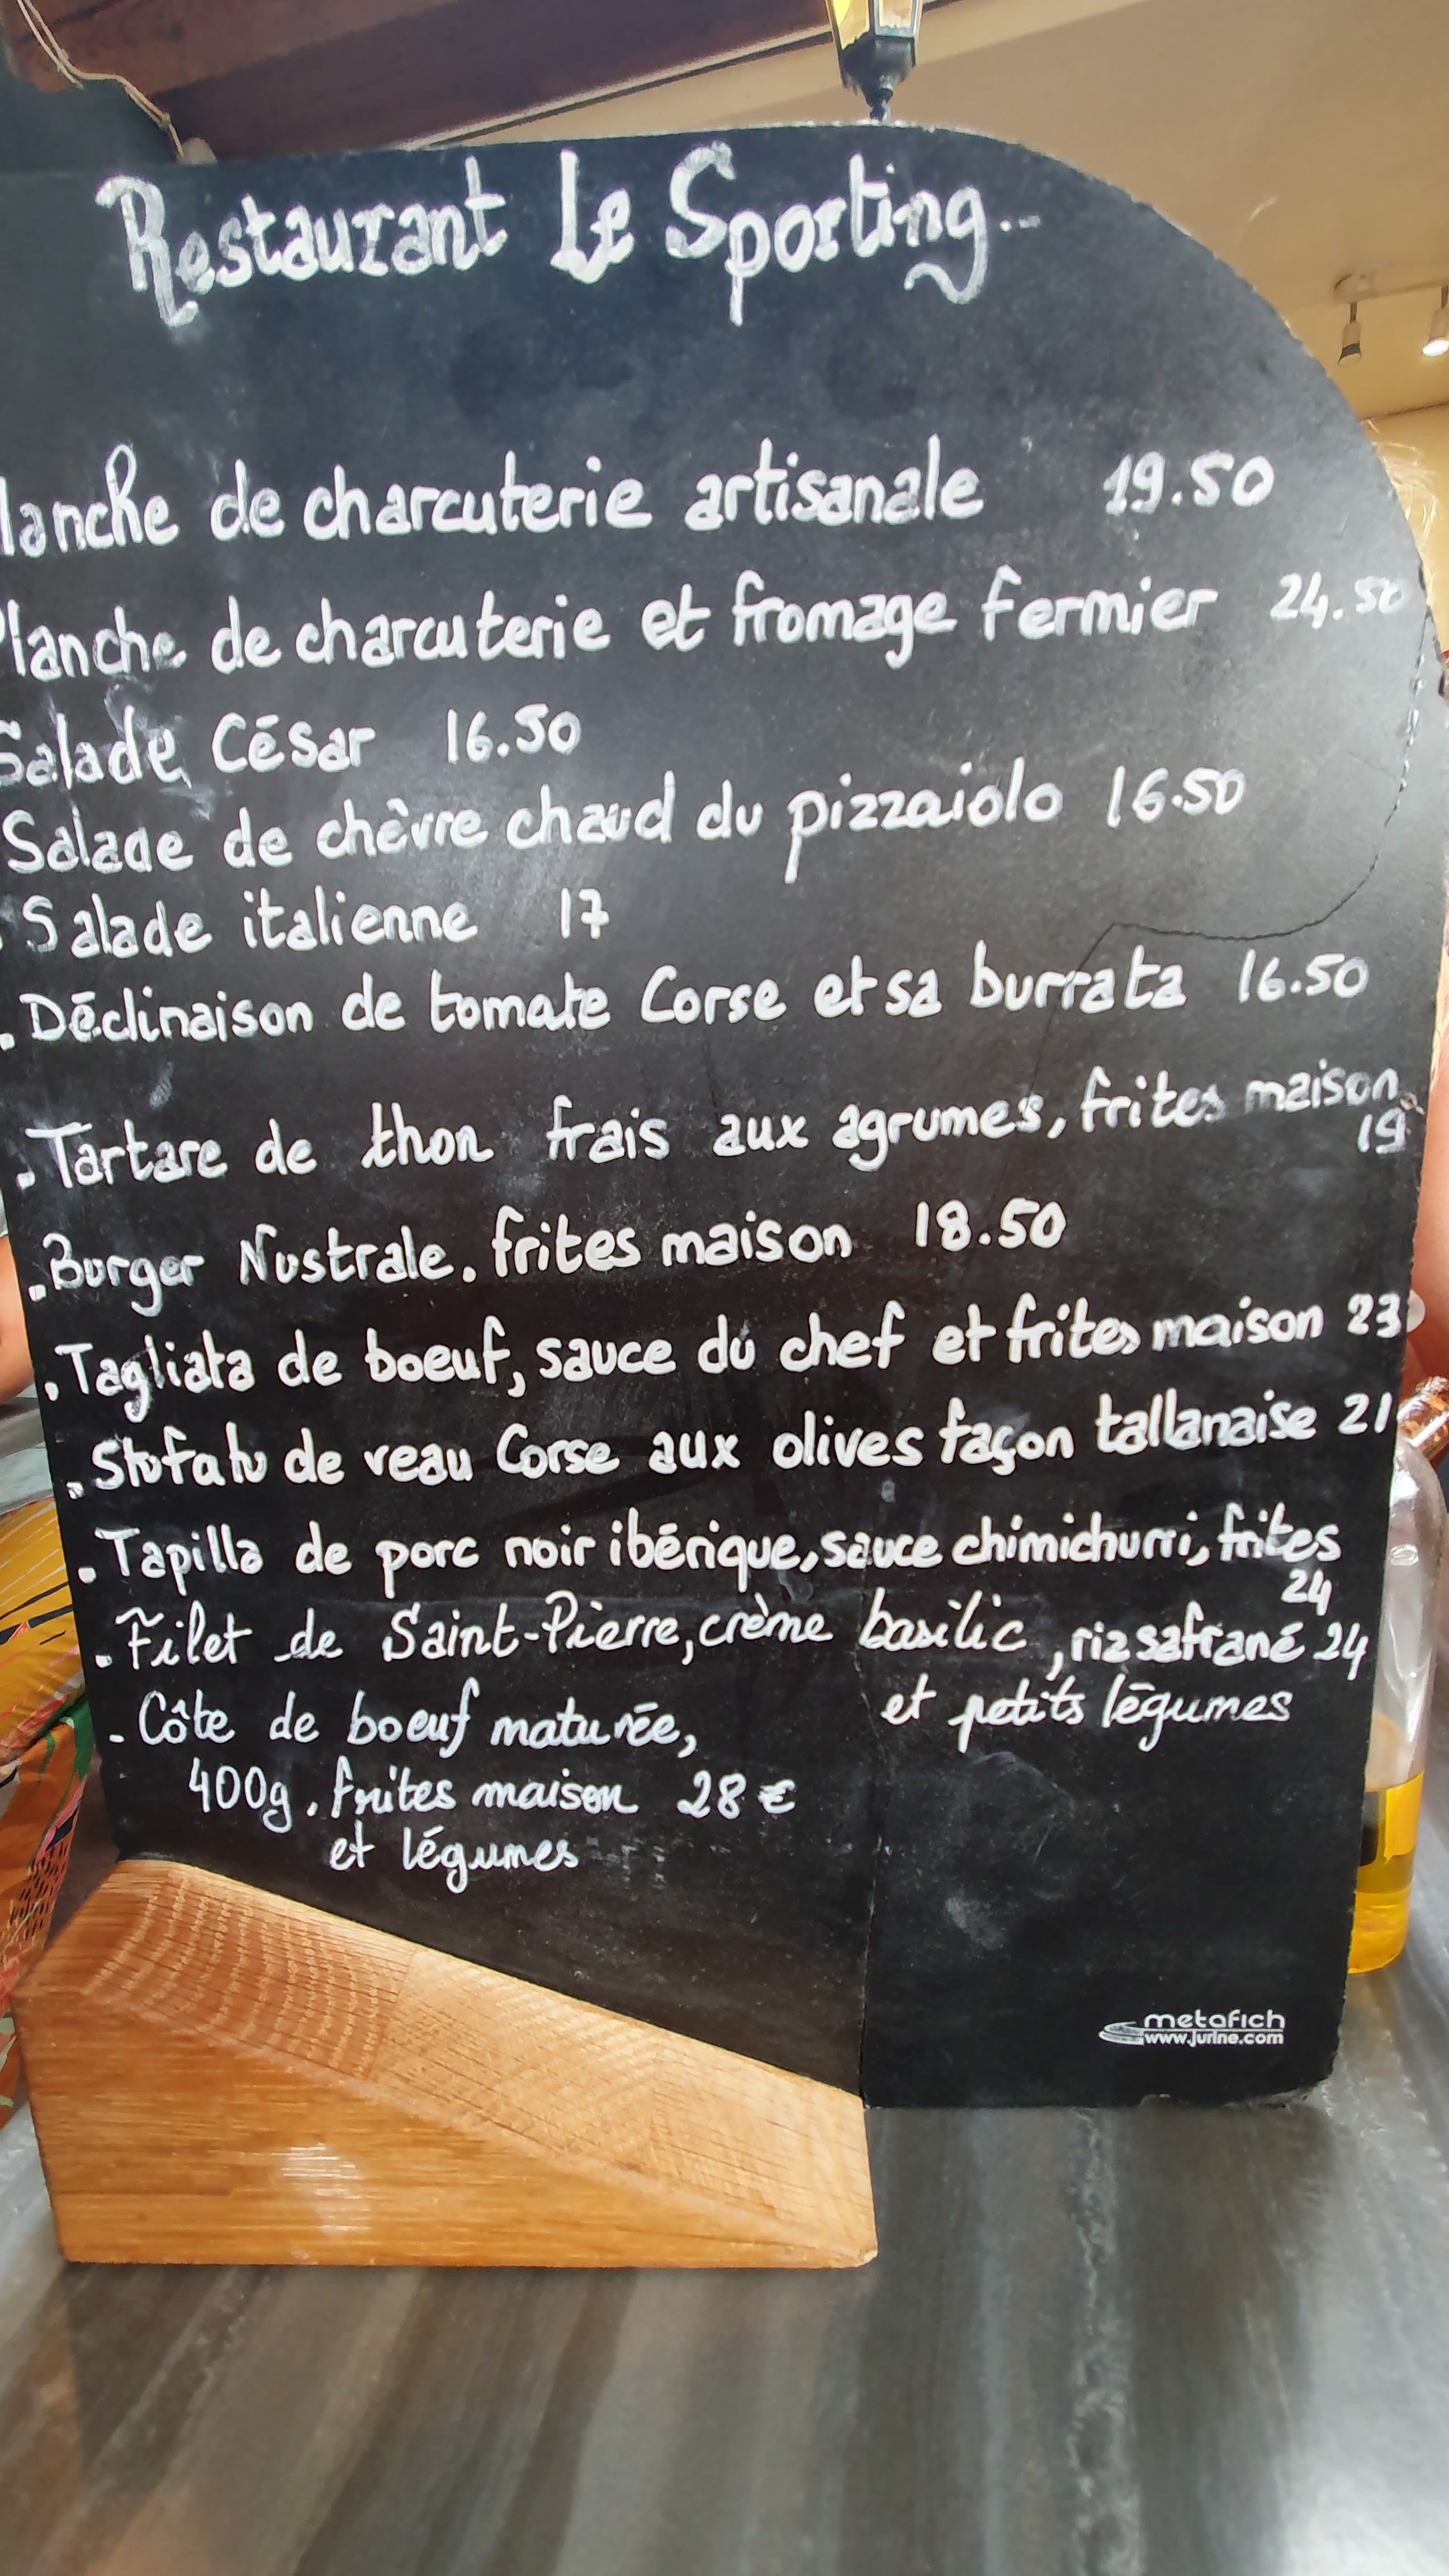 Restaurant Le Sporting..
lanche de charcuterie artisanale 19.50
Planche de charcuterie et fromage fermier 24.50
Salade César 16.50
Salade de chèvre chaud du pizzaiolo 16.50
. Salade italienne 17
. Déclinaison de tomate Corse et sa burrata 16.50
. Tartare de thon frais aux agrumes, frites maison
19
. Burger Nustrale. frites maison 18.50
. Tagliata de boeuf, sauce du chef et frites maison 23
. Stofatu de veau Corse aux olives façon tallanaise 21
. Tapilla de porc noir ibérique, sauce chimichurri, frites
24
. Filet de Saint-Pierre, crème basilic, riz safrané 24
et petits légumes
- Côte de boeuf maturée,
400g. frites maison 28€
et légumes
metafich
www.jurine.com